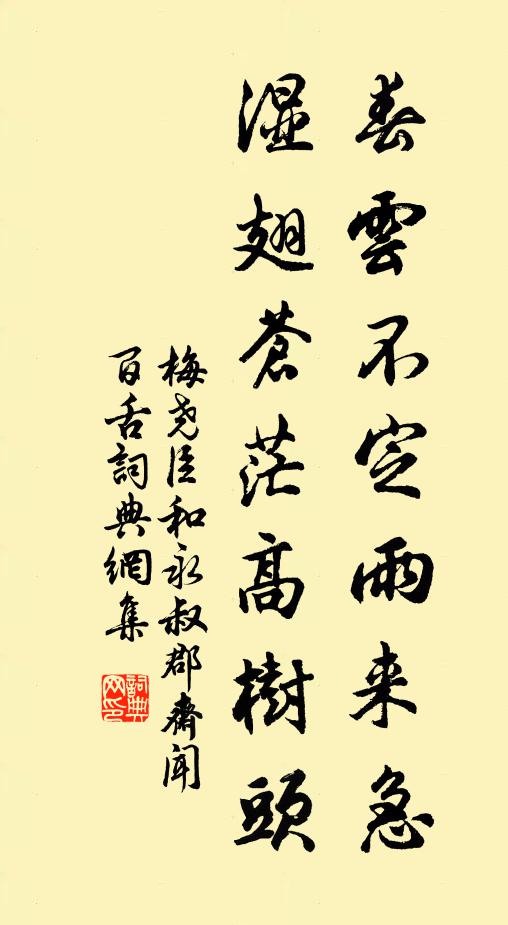 春雲不定雨来急
濕翅蒼茫高樹頭
梅尧臣和永叔郡齋聞
百舌詞典網集
詞典
网印